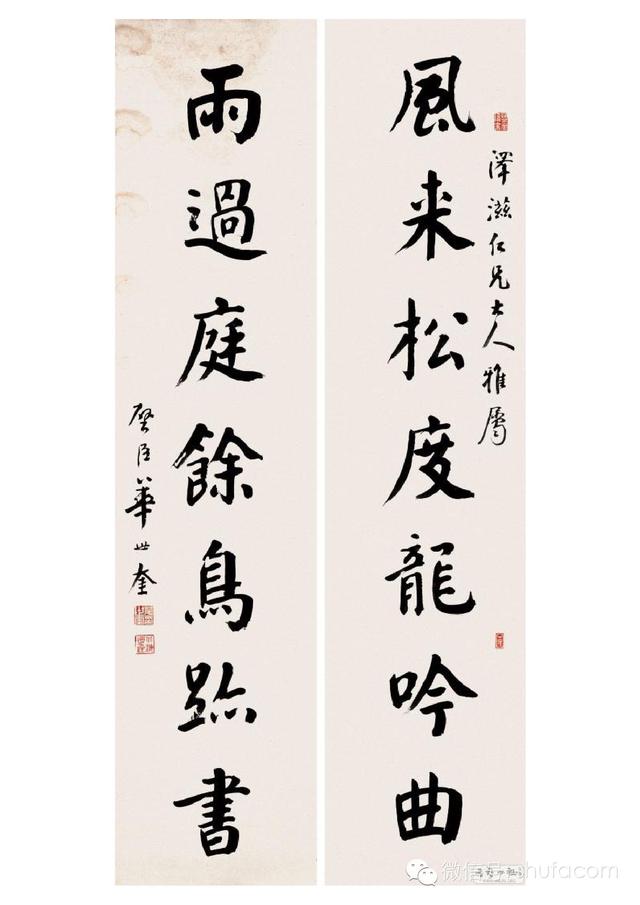 風来松度龍吟曲
澤滋仁兄大人雅屬
雨過庭餘鳥跡書
璧臣華世奎
微信号: shufacom